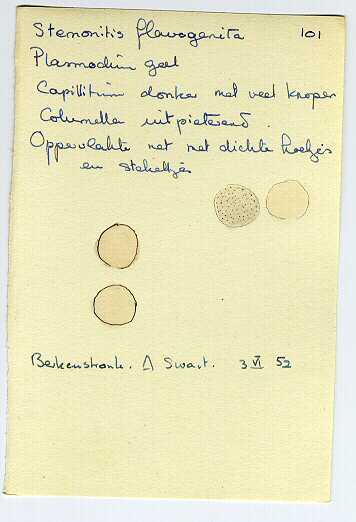 Stemonitis flavogenita 101
Plasmodium geel
Capillitium donker met veel knopen
Columella uitpieterend.
Oppervlakte net met dichte hoekjes
en stekeltjes
Berkenstronk. Swart. 3 VI 52